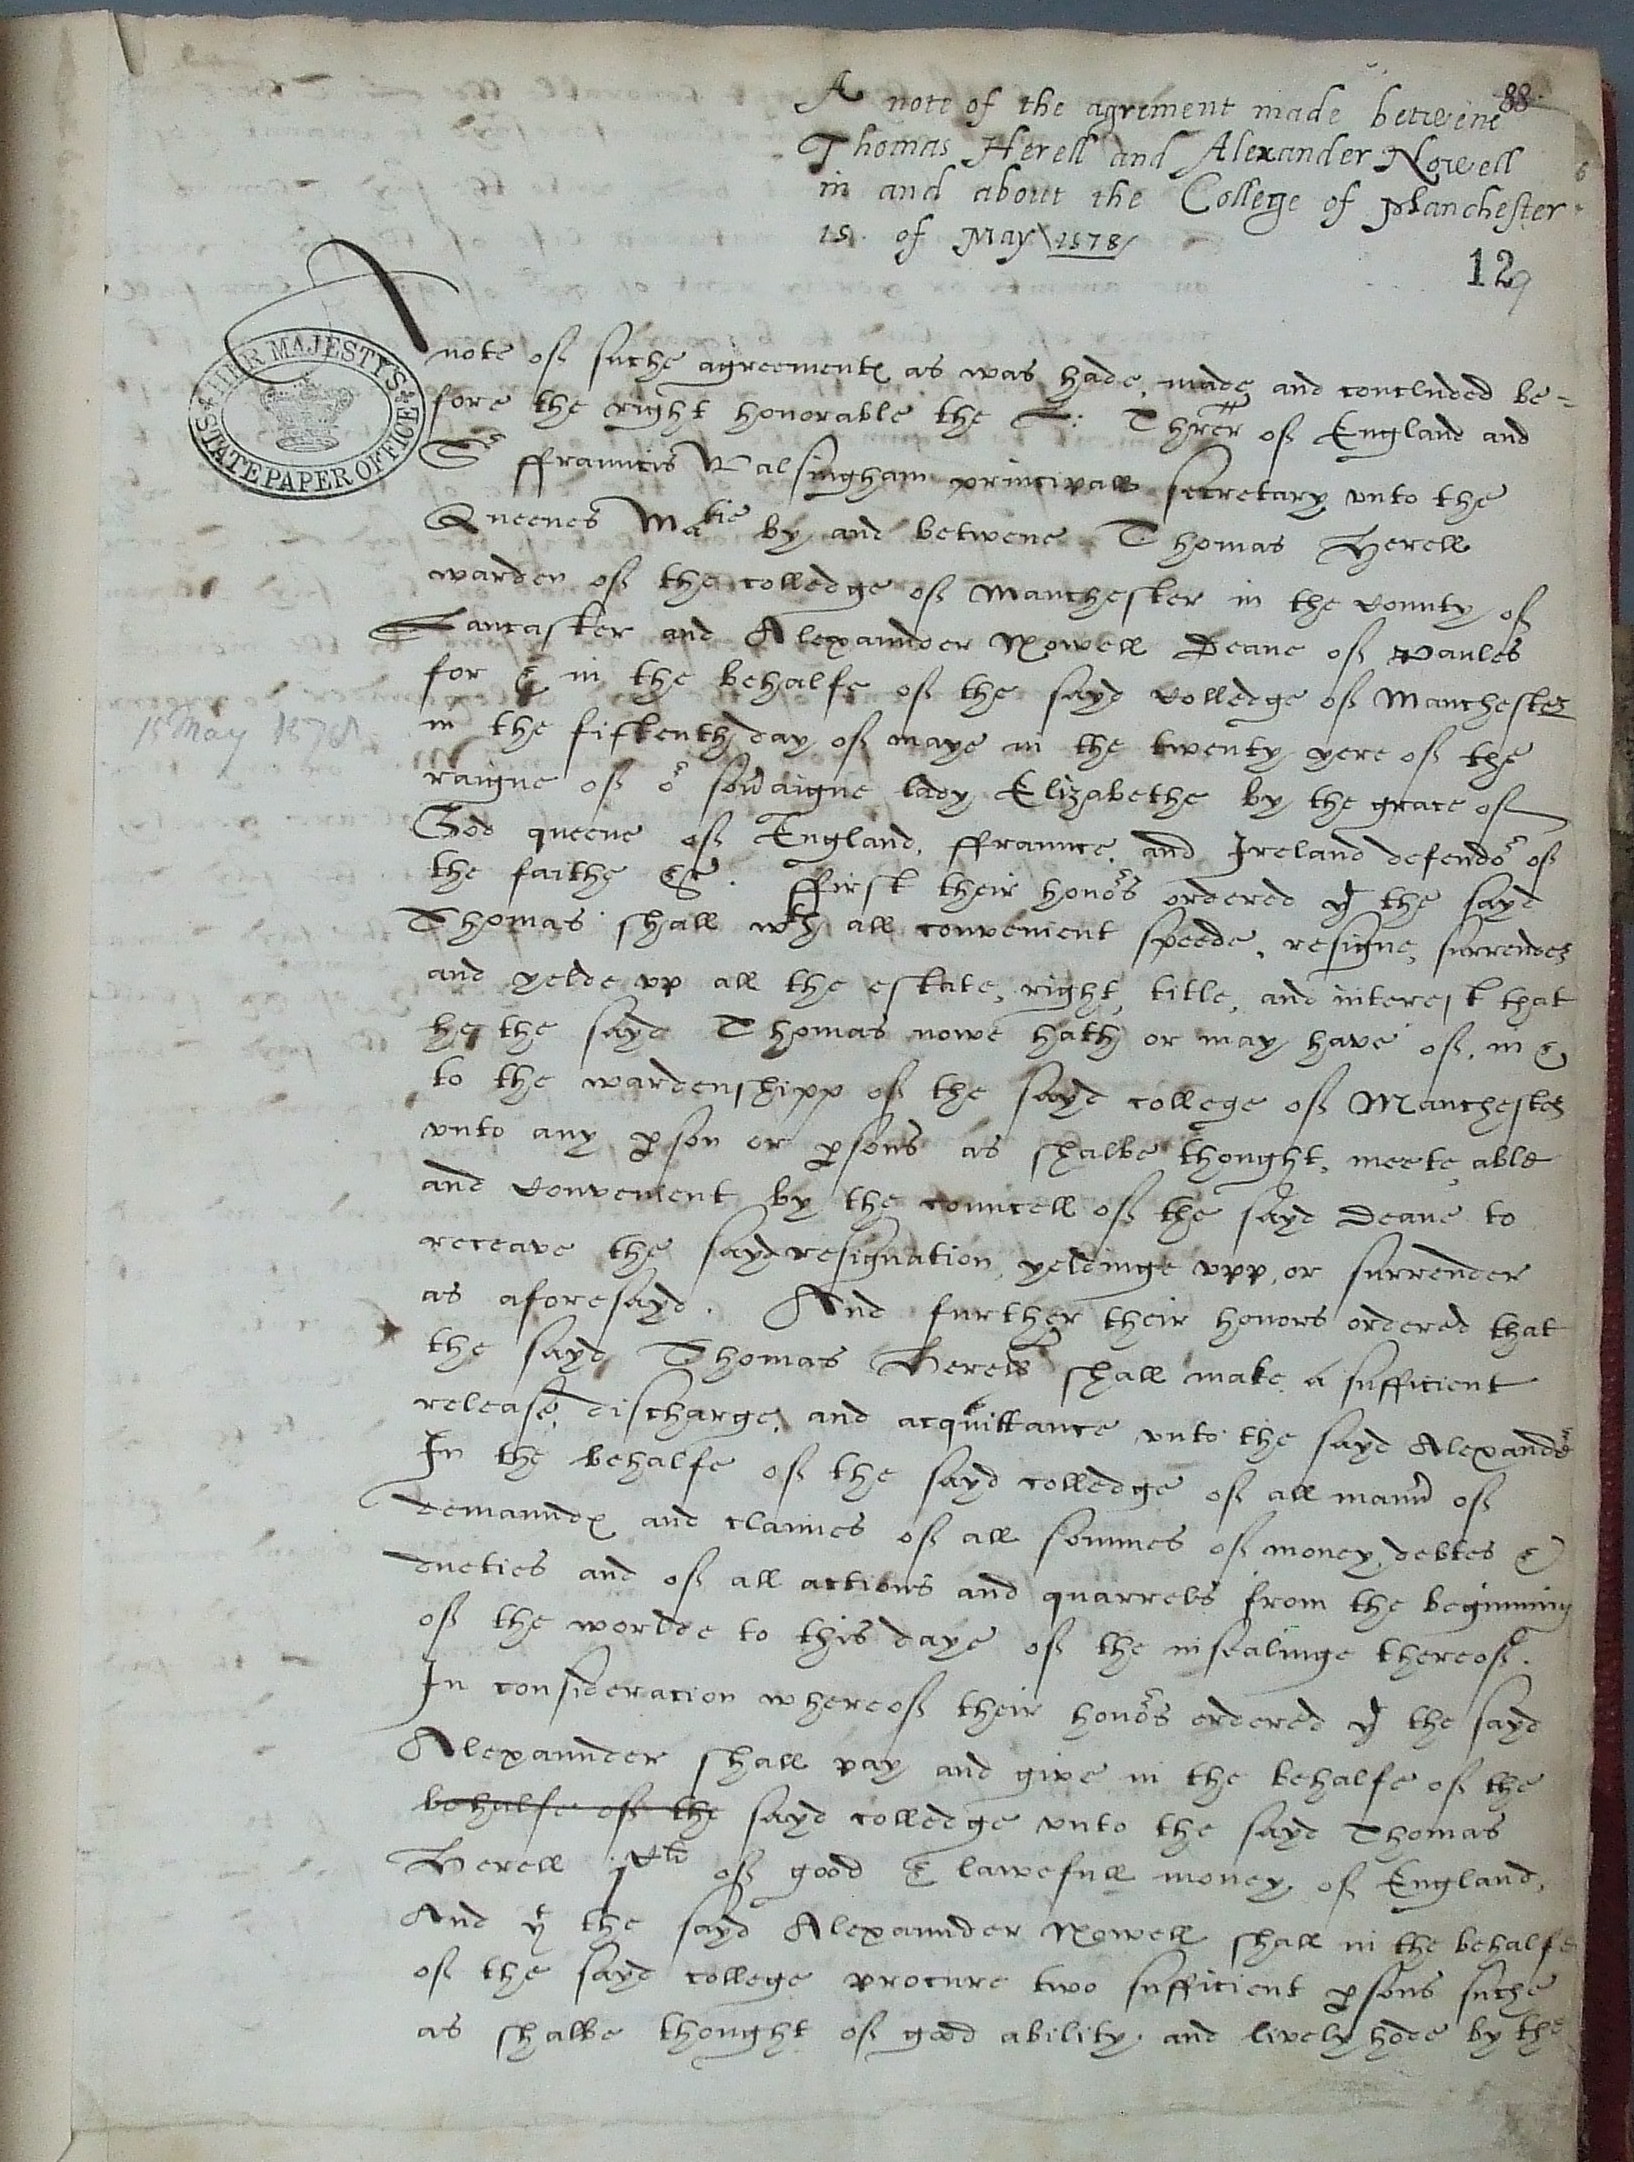 88.
A note of the agrement made betwene
Thomas Herell and Alexander Nowell
in and about the College of Manchester
15. of May 1578
12
HER MAJESTY'S
STATE PAPER OFFICE
A note off suche agreementes as was hade, made and concluded be=
fore the right honorable the L: Threr off England and
Sr ffrauncis Walsingham principall secretary vnto the
Queenes Matie by and betwene Thomas Herell
warden off the colledge off Manchester in the County off
Lancaster and Alexaunder Nowell Deane off Paules
for & in the behalfe off the sayd Colledge off Manchester
15 May 1578
in the fiftenth day off maye in the twenty yere off the
raigne off or souaigne lady Elizabethe by the grace off
God queene off England, ffraunce, and Ireland defendor off
the faithe &c. ffirst their honors ordered yt the sayd
Thomas shall wth all convenient speede, resigne, surrender
and yelde vp all the estate, right, title, and interest that
he the sayd Thomas nowe hath or may have off, in &
to the wardenshipp off the sayd college off Manchester
vnto any pson or psons as shalbe thought, meete, able
and Convenient by the councell off the sayd Deane to
receave the sayd resignation, yeldinge vpp, or surrender
as aforesayd. And further their honors ordered that
the sayd Thomas Herell shall make a sufficient
release, discharge, and acquittance vnto the sayd Alexander
In the behalfe off the sayd colledge off all mannr off
demaundes and claimes off all sommes off money, debtes &
dueties and off all actions and quarrels from the beginning
off the worlde to this daye off the insealinge thereoff.
In consideracion whereoff their honors ordered yt the sayd
Alexaunder shall pay and give in the behalfe off the
behalfe off the sayd colledge vnto the sayd Thomas
Herell off good & lawefull money off England,
And yt the sayd Alexaunder Nowell shall in the behalfe
off the sayd college procure two sufficient psons suche
as shalbe thought off good ability and livelyhode by the